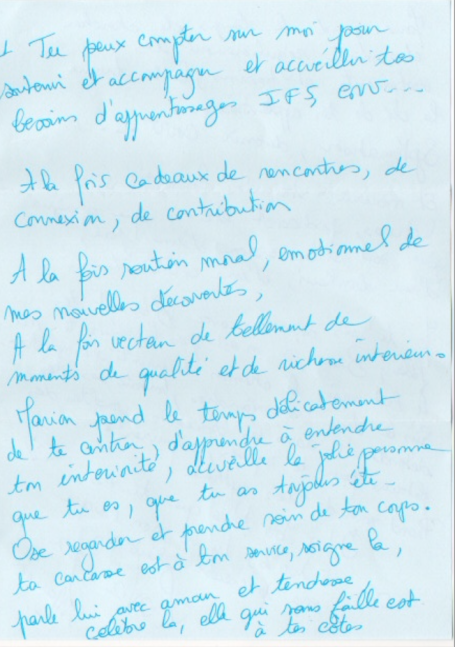 1 Tu peux compter sur moi pour
soutenir et accompagner et accueillir tes
besoins d'apprentissages IFS, CNV...
A la fois cadeaux de rencontres, de
connexion, de contribution
A la fois soutien moral, emotionnel de
mes nouvelles découvertes,
A la fois vecteur de tellement de
moments de qualité et de richesse intérieure.
Marion prend le temps délicatement
de te centrer, d'apprendre à entendre
ton intériorité, accueille la jolie personne
que tu es, que tu as toujours été.
Ose regarder et prendre soin de ton corps.
ta carcasse est à ton service, soigne la,
parle lui avec amour et tendresse,
celèbre la, elle qui sans faille est
à tes côtés